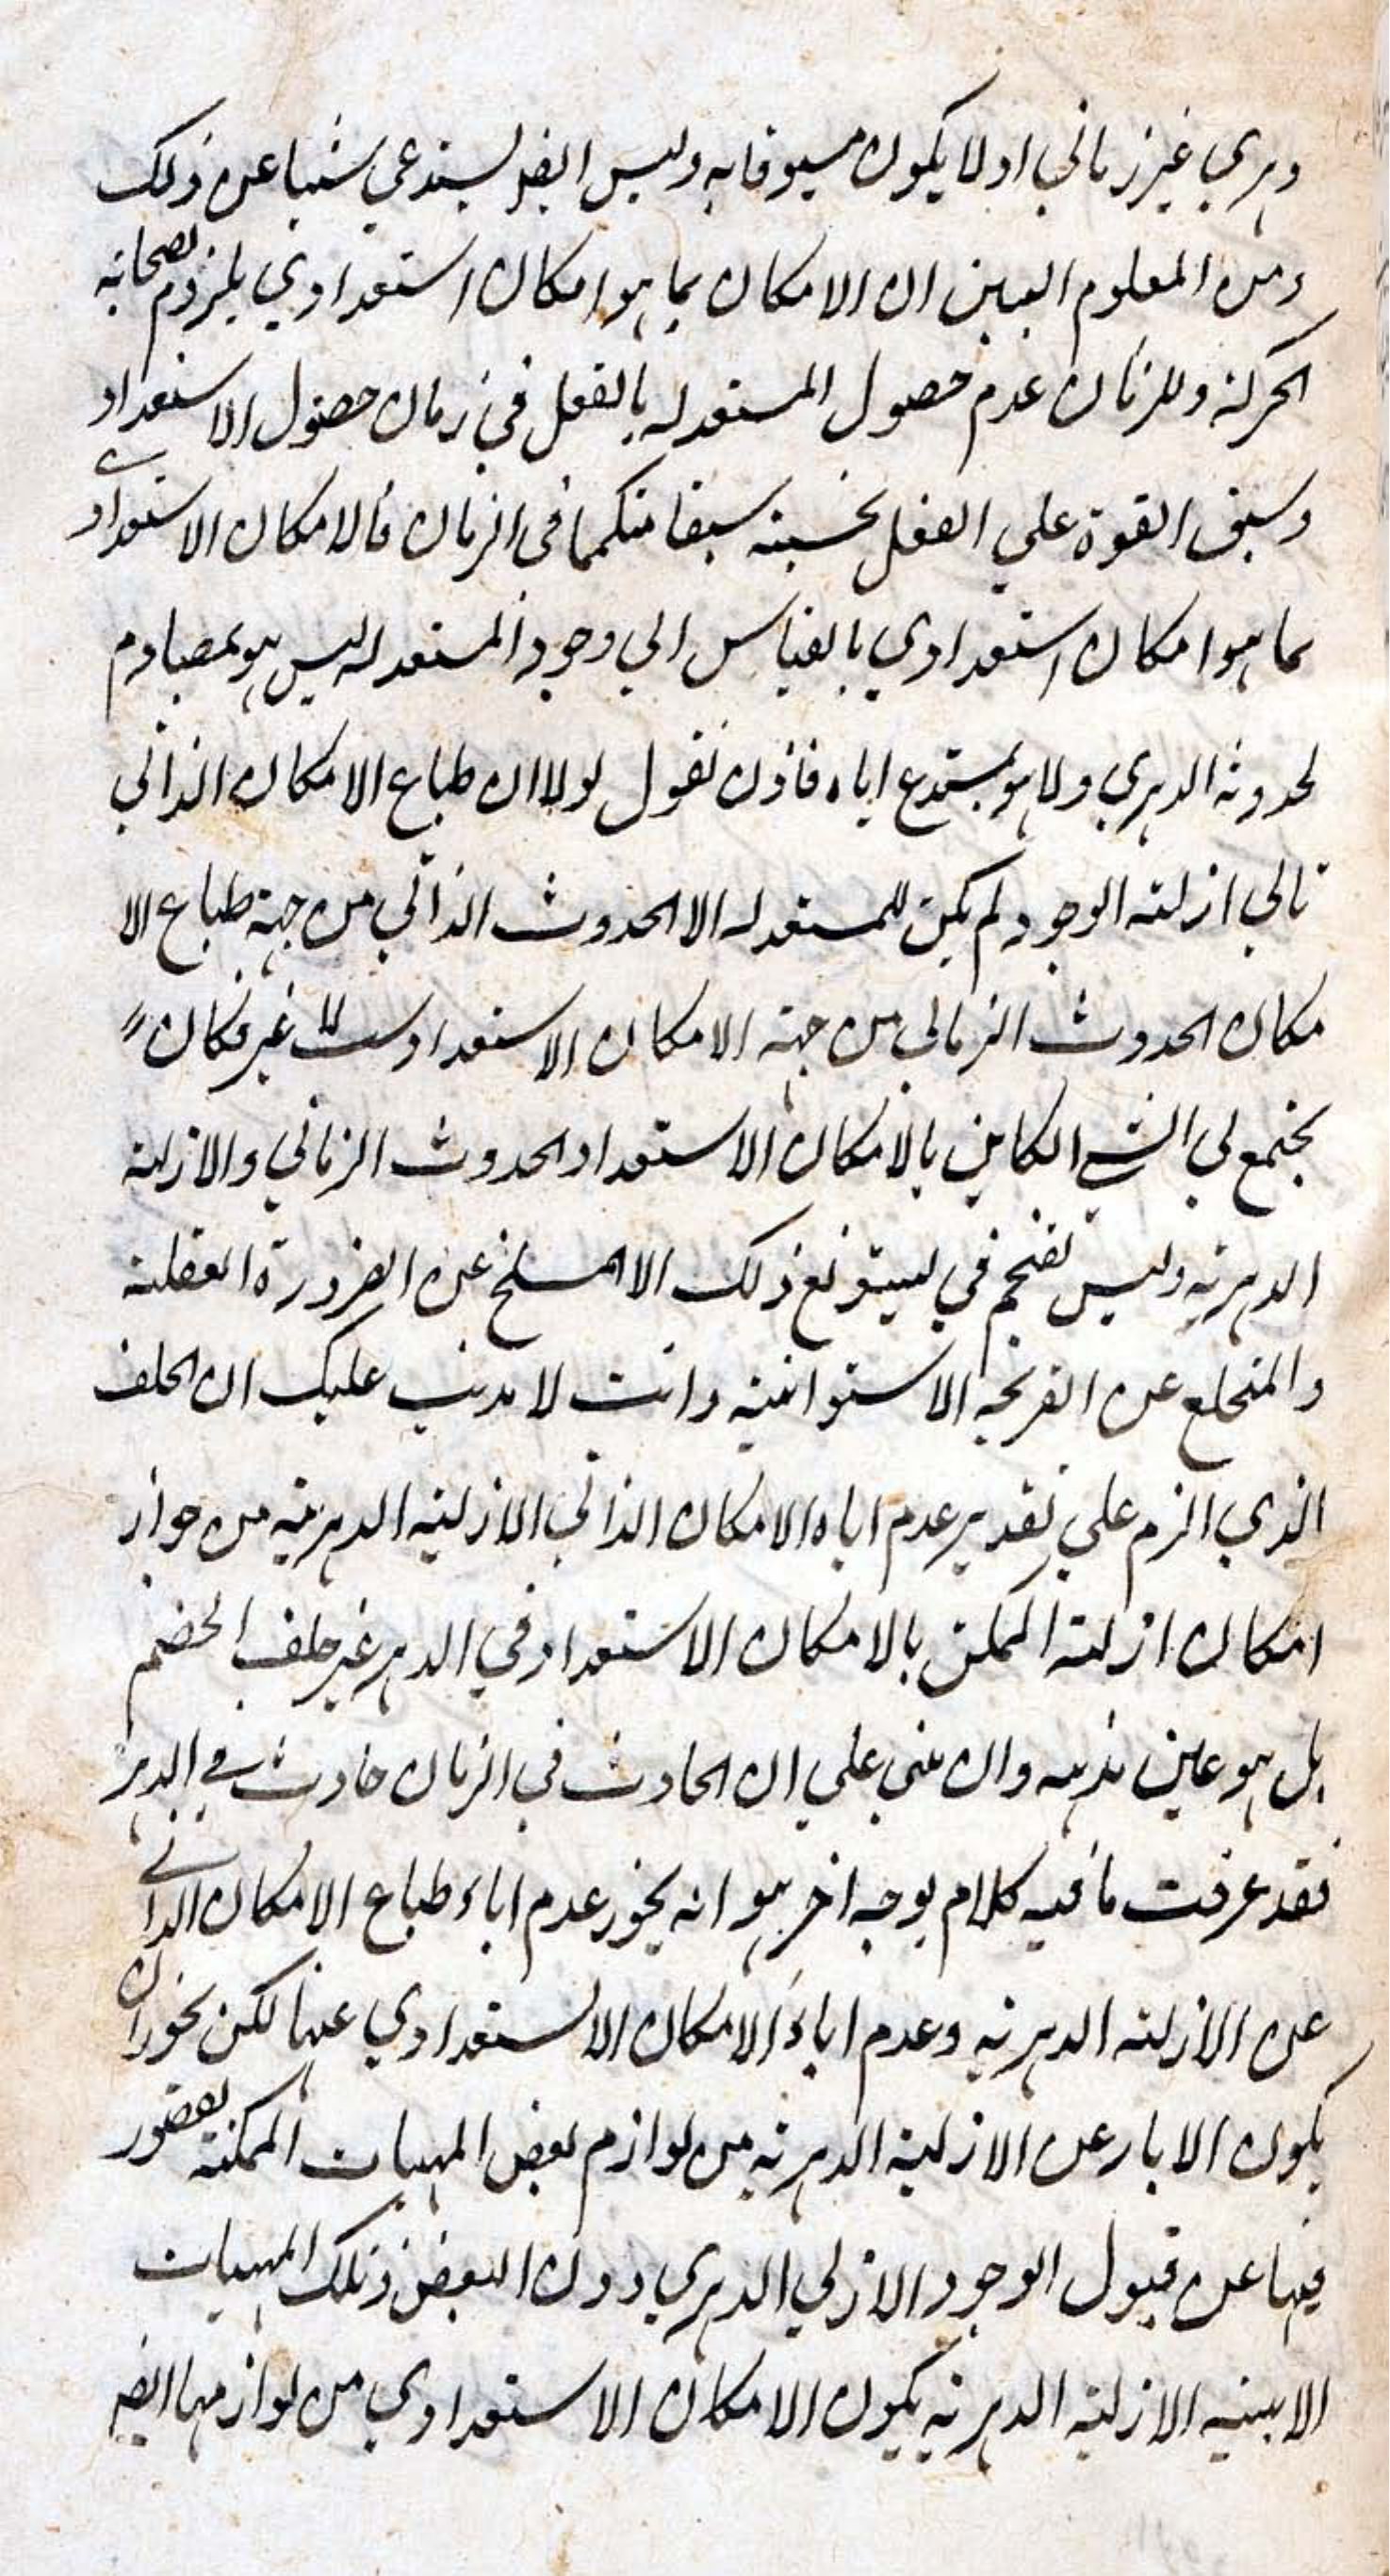 دهري غير زماني اولا يكون مسبوقا به وليس ايضا يستدعي شيئا عن ذلك
ومن المعلوم المبين ان الامكان بما هو امكان استعدادي يلزم لصحابته
الحركة وللزمان عدم حصول المستعد له بالفعل في زمان حصول الاستعداد
وسبق القوة على الفعل بحسبه سبقا متكمما في الزمان فالامكان الاستعدادي
بما هو امكان استعدادي بالقياس الي وجود المستعد له ليس هو بمصادم
لحدوثه الدهري ولا هو بمستدع اياه فاذن نقول لولا ان طباع الامكان الذاتي
تابي ازلية الوجود لم يكن للمستعد له الا الحدوث الذاتي من جهة طباع الا
مكان الحدوث الزماني من جهة الامكان الاستعداد لا غير فكان
يجتمع في الشي الكاين بالامكان الاستعداد الحدوث الزماني والازلية
الدهرية وليس يقتحم في تسويغ ذلك الا المنسلخ عن الضرورة العقلية
والمنخلع عن القريحة الاستوائية وانت لا يذهب عليك ان الخلف
الذي الزم علي تقدير عدم اباء الامكان الذاتي الازلية الدهرية من جواز
امكان ازلية الممكن بالامكان الاستعداد في الدهر غير خلف الخصم
بل هو عين مذهبه وان بني علي ان الحادث في الزمان حادث في الدهر
فقد عرفت ما فيه كلام بوجه اخر هو انه يجوز عدم اباء طباع الامكان الذاتي
عن الازلية الدهرية وعدم اباء الامكان الاستعدادي عنها لكن يجوز ان
يكون الاباء عن الازلية الدهرية من لوازم بعض المهيات الممكنة لقصور
فيها عن قبول الوجود الازلي الدهري دون البعض فتلك المهيات
الابية الازلية الدهرية يكون الامكان الاستعدادي من لوازمها ايضا